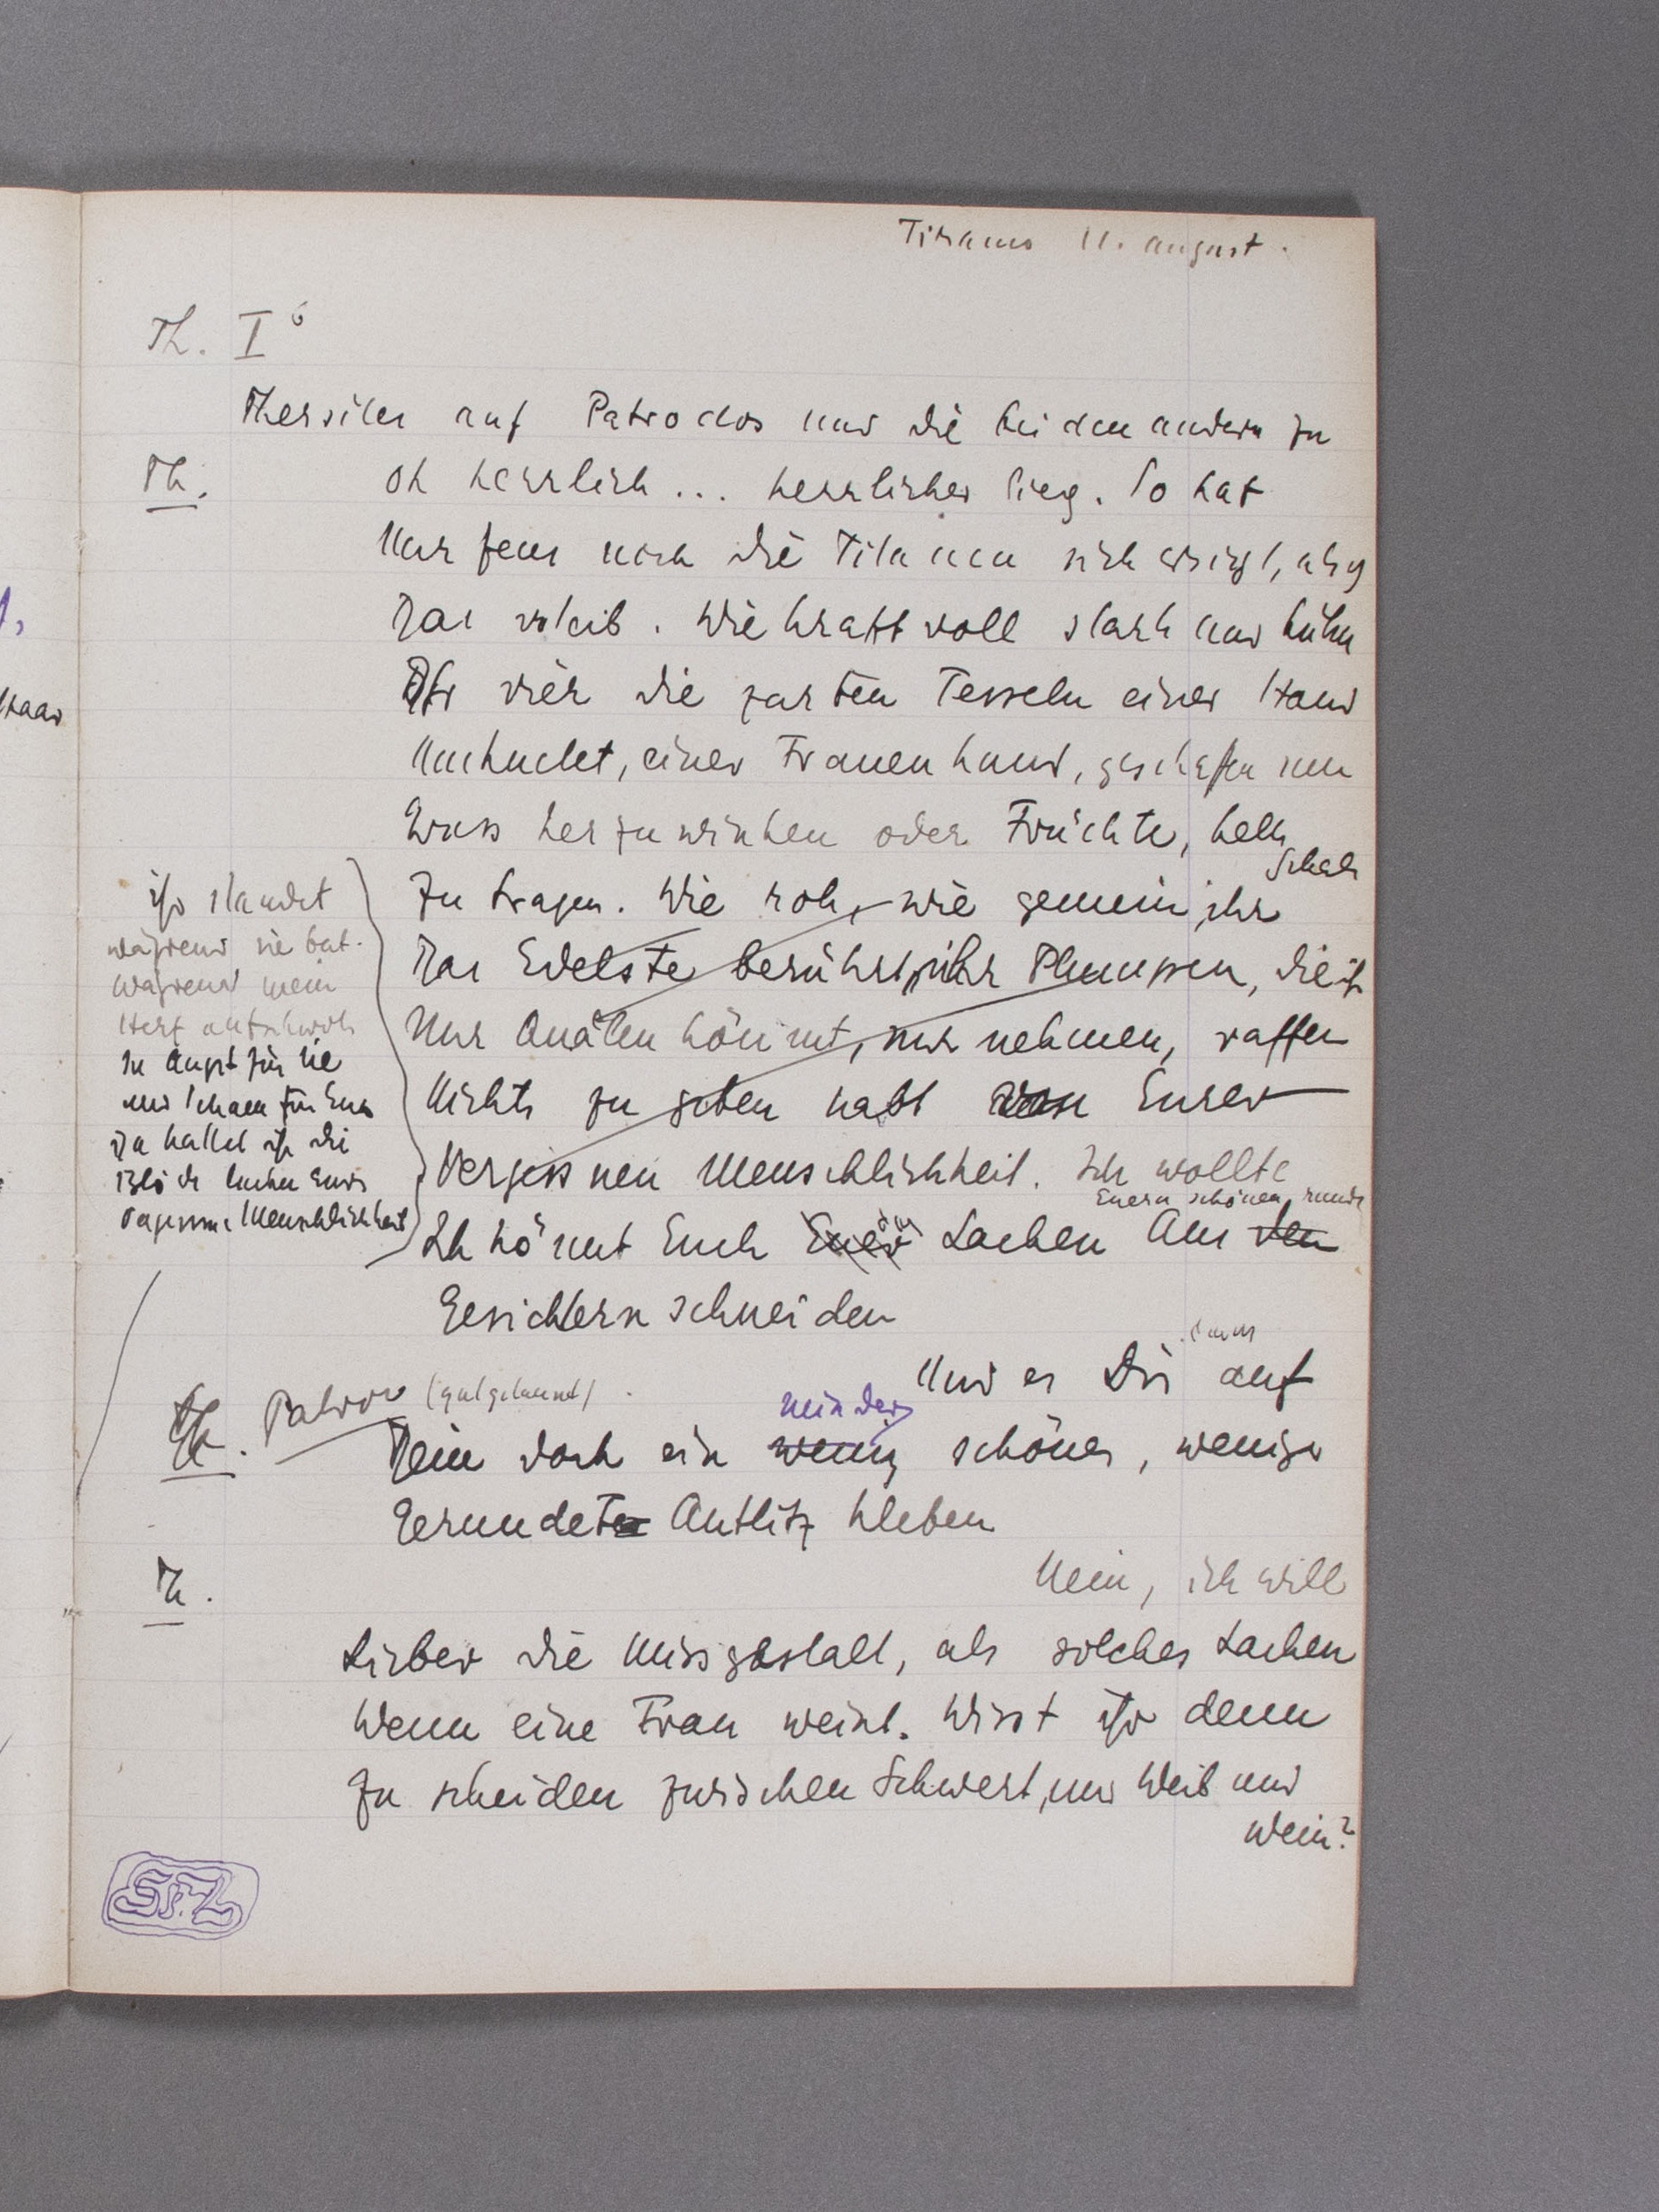 Tirano 11. August.
Th. I
Thersites auf Patroclos und die beiden andern zu
Th.
Oh herrlich... herrlicher Sieg. So hat
Nur jener noch die Titanen sich
Das Weib. Wie kraftvoll stark und kühn
Ihr vier die zarten Fesseln einer Hand
einer Frauenhand, geschaffen nur
herzuwinken oder Früchte, helle
Schale
Zu tragen. Wie roh, wie gemein ihr
Das Edelste berührt, ihr Plumpen, die ihr
Nur Quälen könnt, nur nehmen, raffen
Nichts zu geben habt von Eurer
Vergessnen Menschlichkeit. Ich wollte
Euern schönen, runden
Ich könnt Euch Euer das Lachen Aus den
Gesichtern schneiden
ihr standet
während sie bat.
während mein
Herz aufschwoll
In Angst für sie
und Scham für Euch
Da hattet ihr die
Blöde Lachen Eurer
vergessnen Menschlichkeit
Th. Patroc (gutgelaunt).
Und es Dir auf
minder
Dein doch ein wenig schönes, weniger
Gerundetes Antlitz kleben
Th.
Nein, ich will
Lieber die Missgestalt, als solches Lachen
Wenn eine Frau weint. Wisst ihr denn
Zu scheiden zwischen Schwert, und Weib und
Wein?
SFZ
Haar